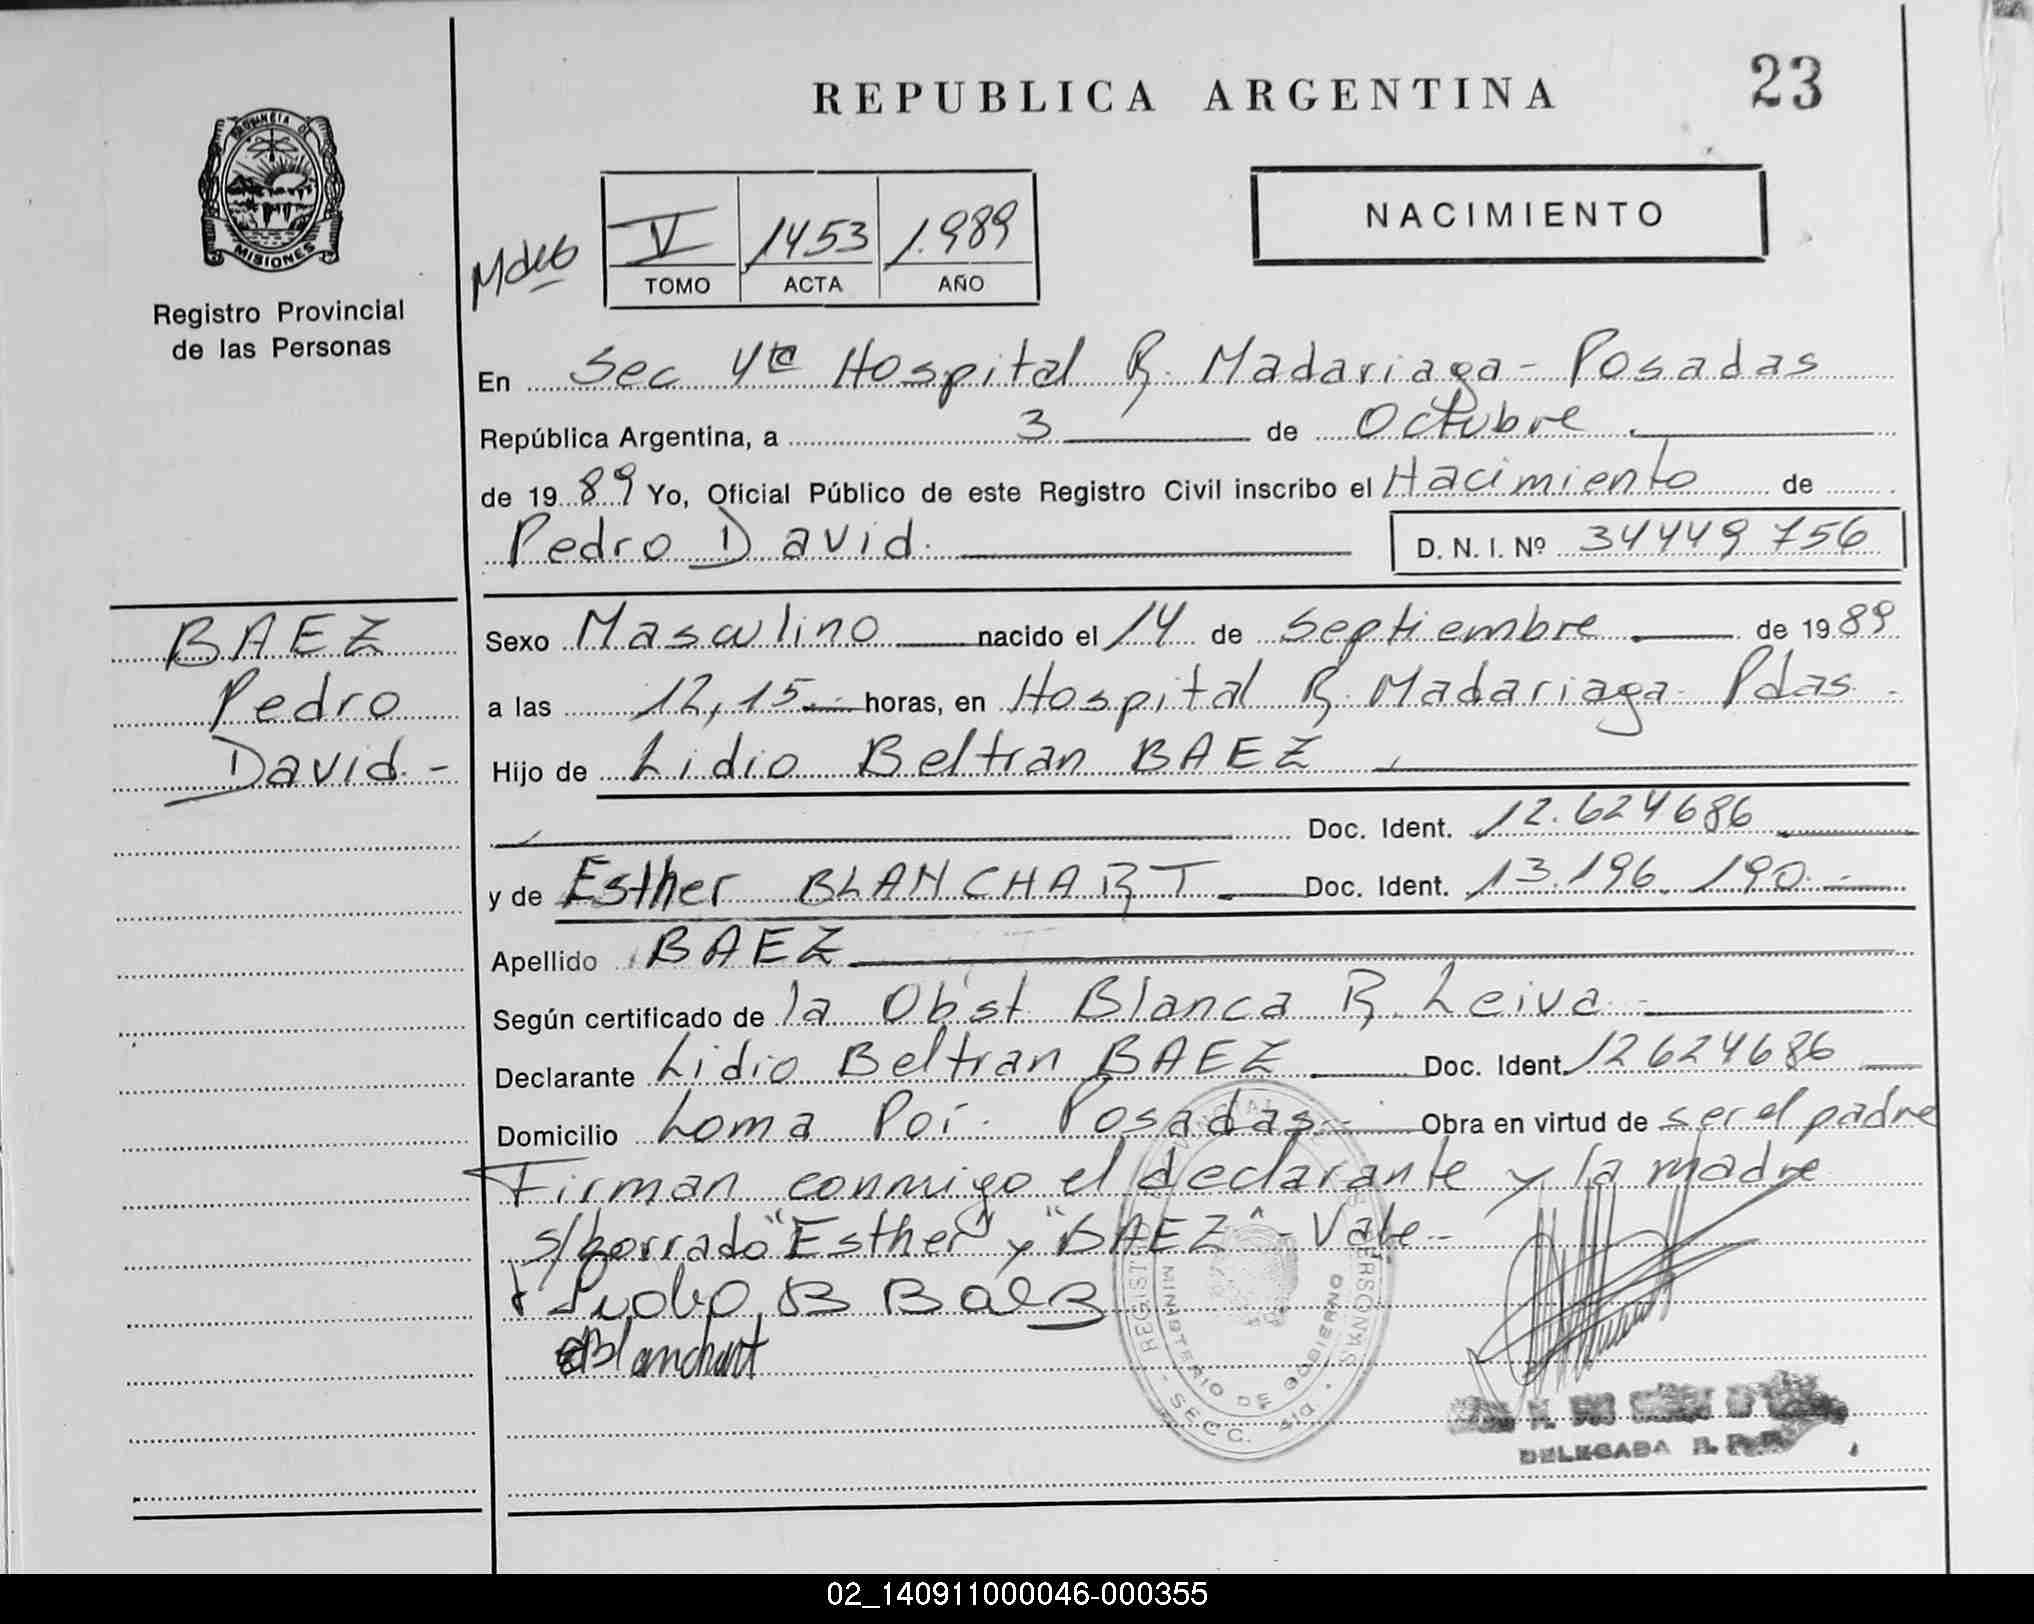 REPUBLICA ARGENTINA
23
PROVINCIA DE
MISIONES
Registro Provincial
de las Personas
V 1453 1.989
TOMO ACTA AÑO
NACIMIENTO
En Sec 4ta Hospital R. Madariaga - Posadas
República Argentina, a 3 de Octubre
de 1989 Yo, Oficial Público de este Registro Civil inscribo el Nacimiento de
Pedro David. D. N. I. Nº 34449756
BAEZ
Pedro
David. -
Sexo Masculino nacido el 14 de Septiembre de 1989
a las 12,15 horas, en Hospital R. Madariaga Pdas.
Hijo de Lidio Beltran BAEZ
Doc. Ident. 12.624686
y de Esther BLANCHART Doc. Ident. 13.196.190.-
Apellido BAEZ
Según certificado de la Obst Blanca R. Leiva
Declarante Lidio Beltran BAEZ Doc. Ident. 12624686
Domicilio Loma Poi. Posadas Obra en virtud de ser el padre
Firman conmigo el declarante y la madre
s/borrado "Esther" y "BAEZ" - Vale -
B Baez
Blanchart
MINISTERIO DE GOBIERNO
SECC.
DELEGADA R. P. P.
02_140911000046-000355